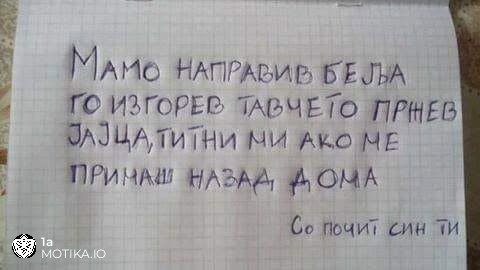 Мамо направив беља
го изгорев тавчето пржев
јајца, титни ми ако ме
примаш назад дома
Со почит син ти
1a
MOTIKA.IO